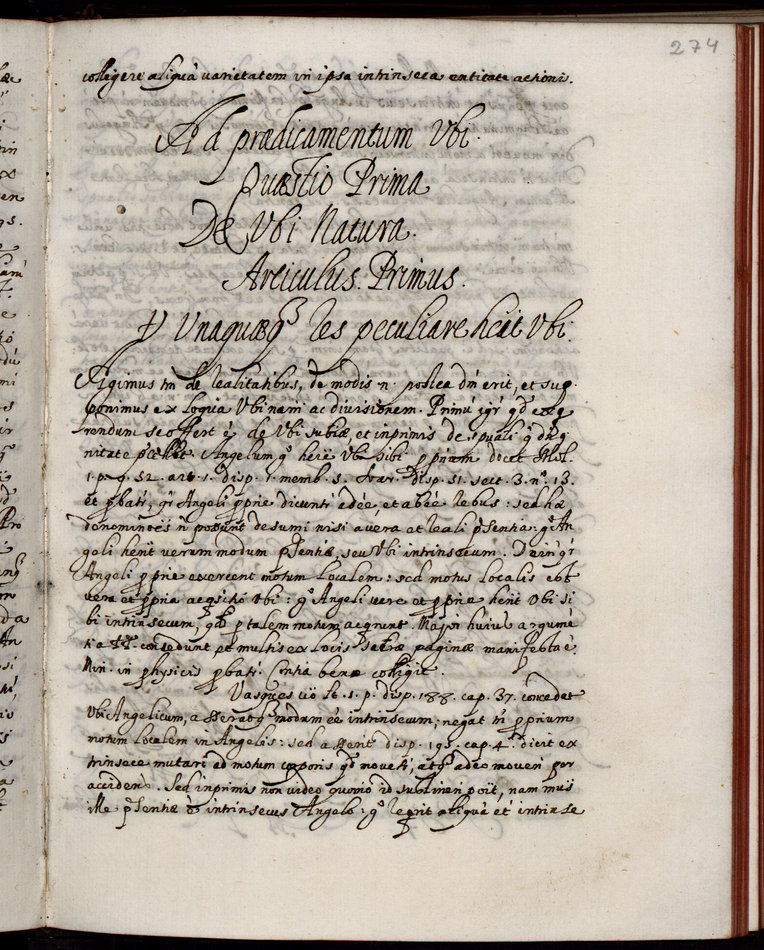 274
colligere aliquā varietatem in ipsa intrinseca entitate actionis.
Ad prædicamentum Vbi.
Quæstio Prima
De Vbi Natura.
Articulus. Primus.
Vnaquæq3 res peculiare heāt Vbi.
Agimus tm̄ de realitatibus, de modis n. postea dm̄ erit, et sup
ponimus ex Logica Vbi nam ac divisionem. Primū igr̄ qd̄
rendum se offert ē de Vbi subiæ, et inprimis de spūali q̄
nitate Angelum q3 here Vbi sibi pprium docet Mol.
1. p. q. 52. art. 1. disp. 1. memb. 5. Soar. disp. 51. sect. 3. n.º 13.
et pbatī, qr̄ Angeli pprie dicuntī adee, et abee rebus: sed hæ
denominōes n̄ possunt desumi nisi a vera et reali pr̄sentia: g.º An
geli hent verum modum pr̄sentiæ, seu Vbi intrinsecum. Dein qr̄
Angeli pprie exercent motum Localem: sed motus Localis est
vera et ppria acqsitio Vbi: g.º Angeli vere et pprie hent Vbi si
bi intrinsecum, qd̄ p talem motum acqrunt. Major huius argumē
ti a concedunt et multis ex locis sacræ paginæ manifesta ē.
Min. in physicis pbatī. Contia bene colligit.
Vasques vō 1. p. disp. 188. cap. 37. concedet
Vbi Angelicum, asseratq3 modum ēe intrinsecum; negat tn̄ pprium
motum Localem in Angelis: sed asserit disp. 195. cap. 4.º dicit ex
trinsece mutari ad motum corporis qd̄ movetī, atq3 adeo moveri per
accidens. Sed inprimis non video quomo id sustineri poīt, nam mus
ille pr̄sentiæ ē intrinsecus Angelo: g.º reqrit aliquā et intrinse